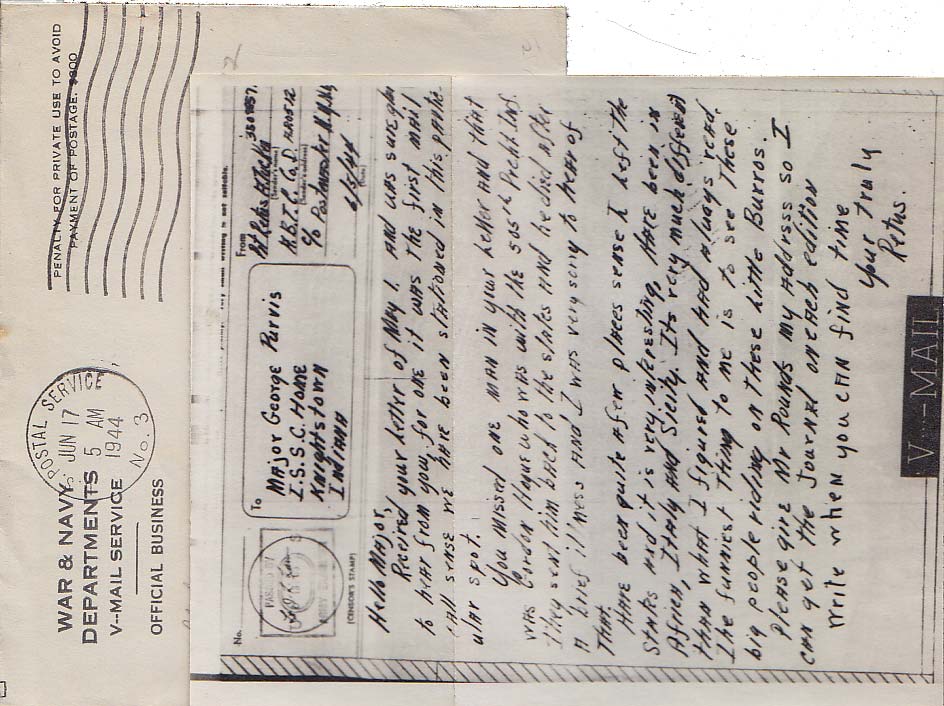 WAR & NAVY
DEPARTMENTS
V-MAIL SERVICE
OFFICIAL BUSINESS
POSTAL SERVICE
JUN 17
5 AM
1944
No. 3
PENALTY FOR PRIVATE USE TO AVOID
PAYMENT OF POSTAGE, $300
No.
(CENSOR'S STAMP)
To
Major George Purvis
I.S.S.C. Home
Knightstown
Indiana
From
(Sender's name)
(Sender's address)
c/o Postmaster N.Y. N.Y.
6/5/44
(Date)
Hello Major,
Recived your Letter of May 1. And was sure glad
to hear from you, for one it was the first mail
call sense we have been stationed in this partic-
ular spot.
You missed one man in your letter And that
was Gordon Hague who was with the 505th Precht. Inf.
They sent him back to the states and he died After
A brief illness And I was very sorry to hear of
That.
Have been quite a few places sense I left the
States And it is very interesting, Have been in
Africa, Italy And Sicily. Its very much different
than what I figured And had Always read.
The funniest Thing to me is to see These
big people riding on these Little Burros
Please give Mr Pounds my Address so I
can get the Journal on each edition
Write when you can find time
Your Truly
Retus.
V···-MAIL